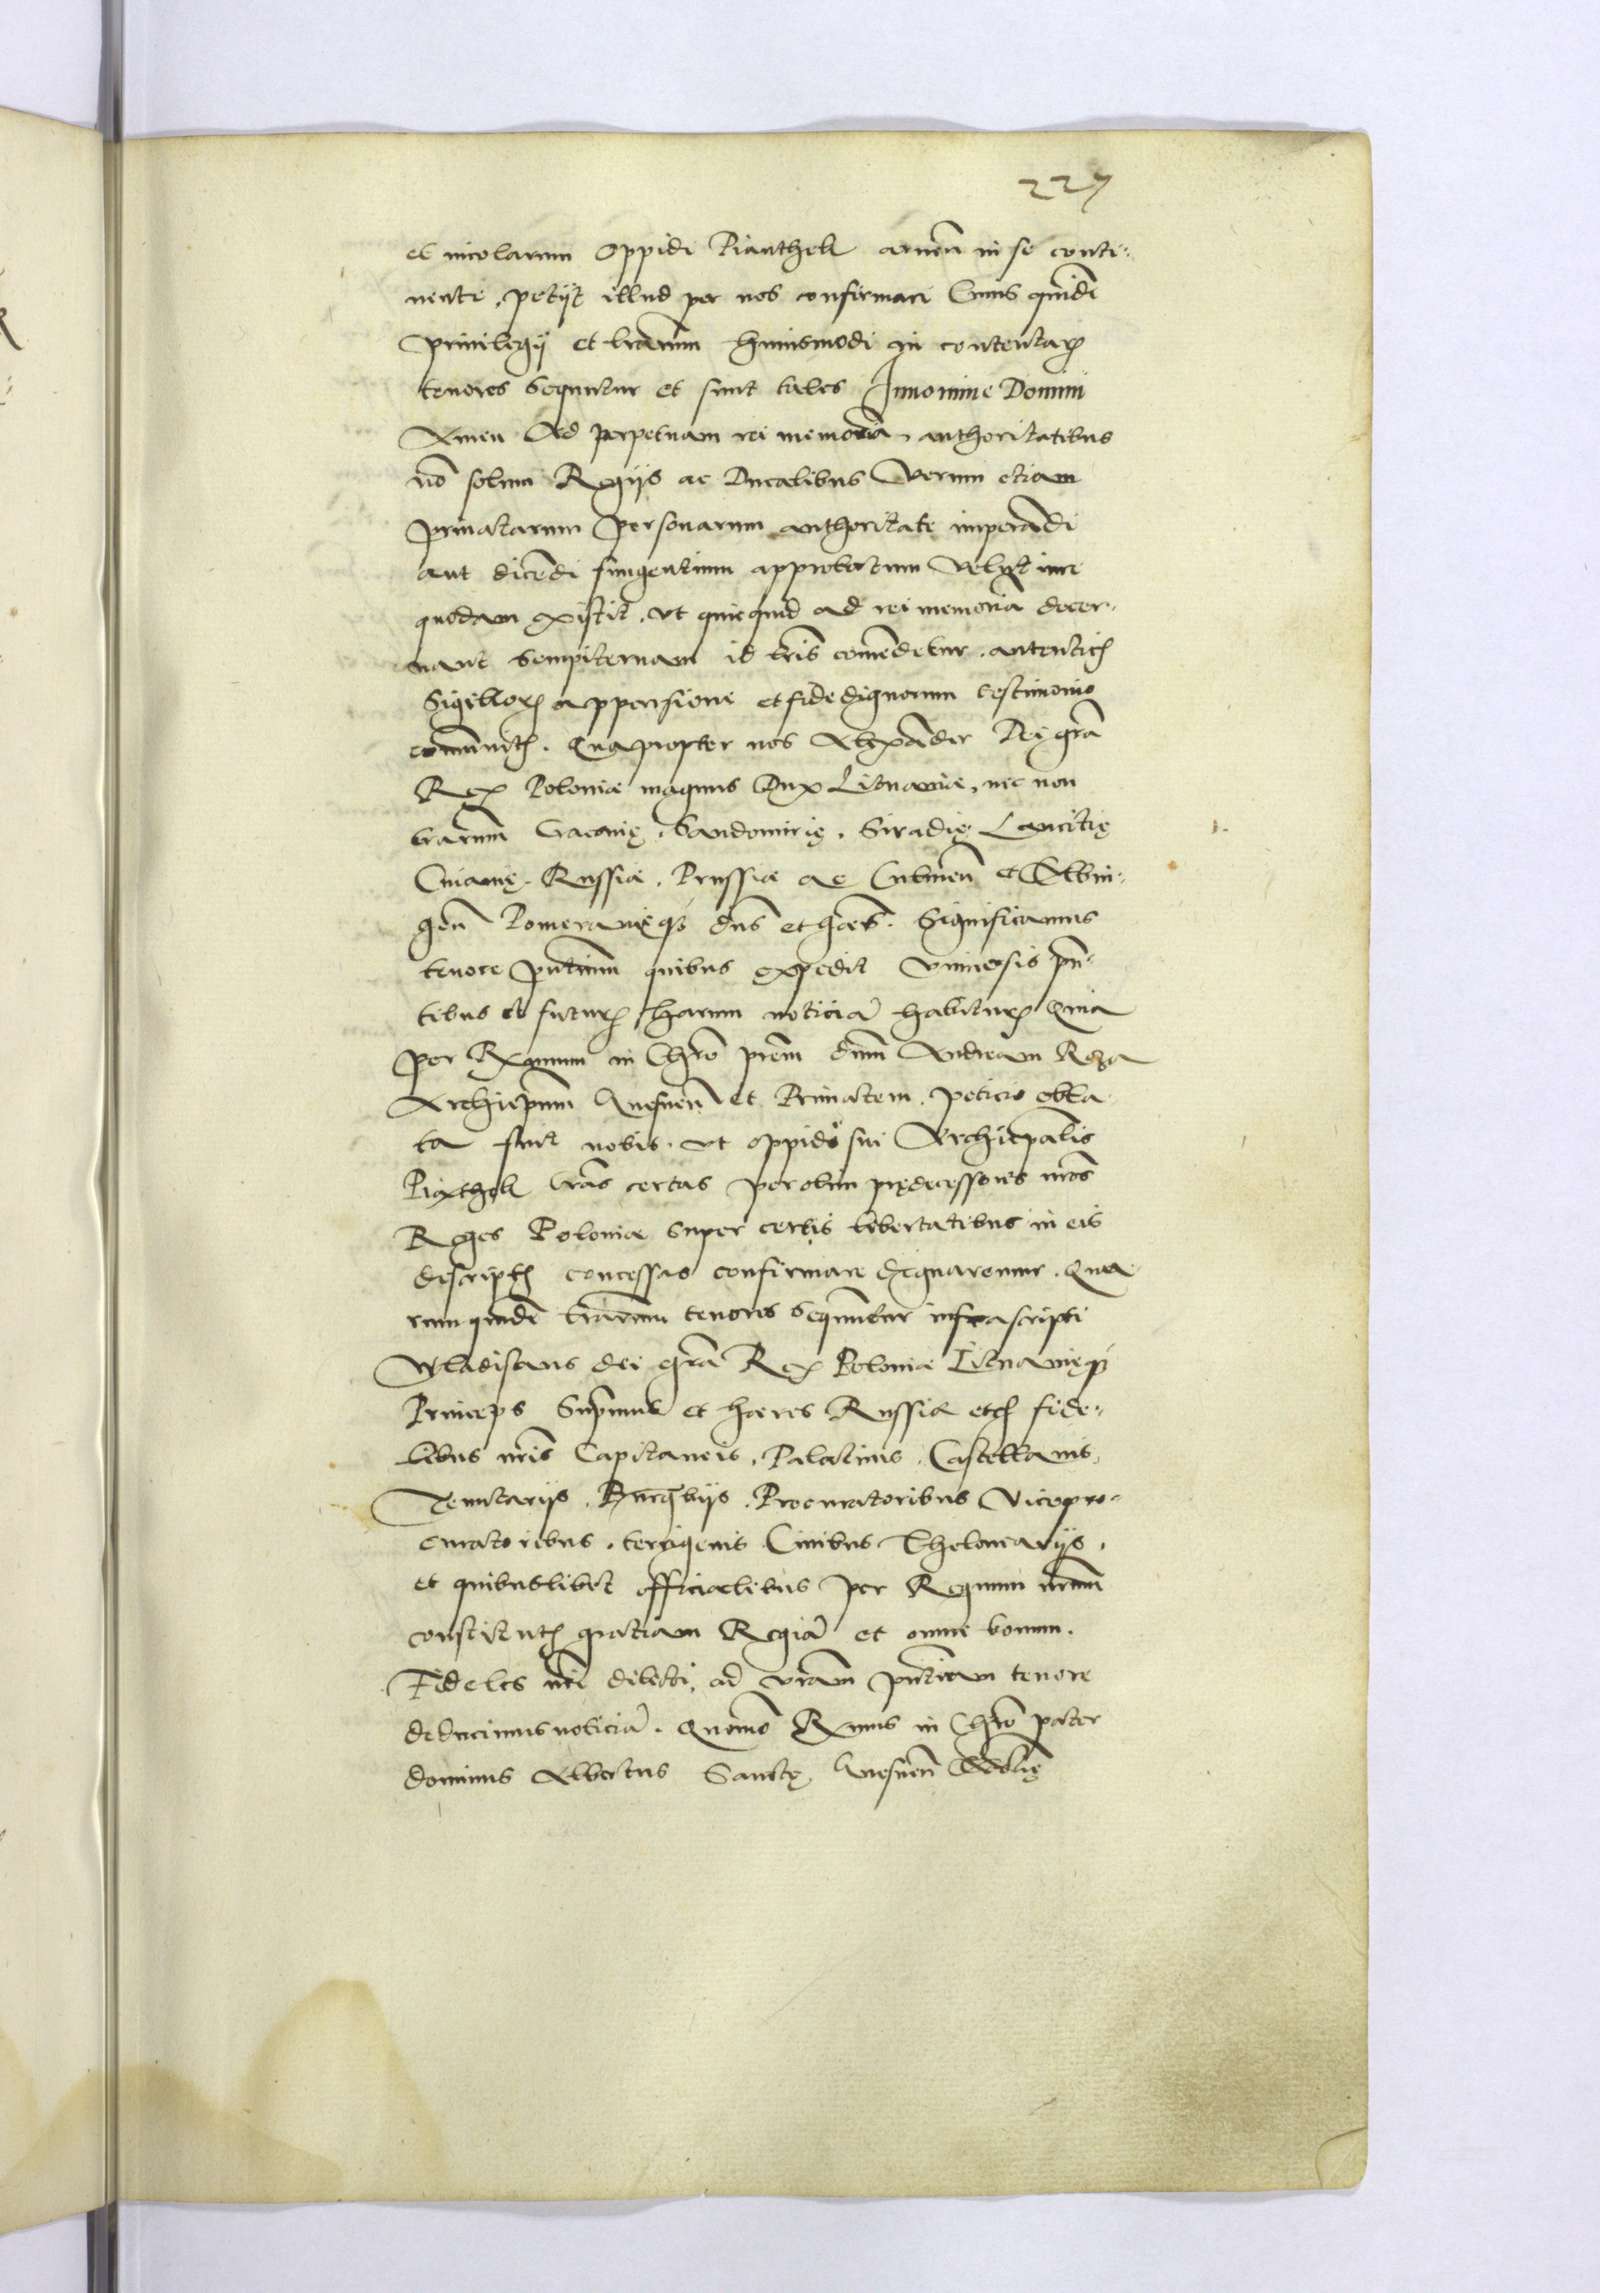 227
et incolarum Oppidi Pianthek armen̄ in se conti-
nente, petijt illud per nos confirmari Cuius quidē
Privilegij et lrarum huiusmodi in contentaꝝ
tenores sequntur et sunt tales Innomine Domini
Amen Ad perpetuam rei memoriā, authoritatibus
nō solum Regijs ac Ducalibus Verum etiam
privatarum Personarum authoritate imperādi
aut dicēdi fungentium approbatum velut iure
quodam existit, ut quicquid ad rei memoriā decer-
nant sempiternam id lr̄is comēdetur, autenticꝭ
Sigilloꝝ appensione et fide dignorum testimonio
comūnitꝭ. Quapropter nos Alexāder Dei grā
Rex Poloniæ magnus Dux Lituaniæ, nec non
trārum Cracovię, Sandomirię, Siradię Lancitię
Cuiavię, Russiæ, Prussiæ ac Culmen̄ et Elbin-
gen̄ Pomeranięqꝫ dn̄s et hæres. Significamus
tenore pn̄tium quibus expedit Universis pn̄-
tibus et futurꝭ harum noticiā habiturꝭ Quia
per R̄mum in Chrō prēm dn̄m Andream Roza
Archiepūm Gnesnen̄ et Primatem, peticio obla-
ta fuit nobis, ut oppido sui Archiepalis
Piathek lrās certas per olim prędecessores nr̄os
Reges Poloniæ super certis libertatibus in eis
descriptꝭ concessas confirmare dignaremur. Qua-
rum quidē lrārum tenores sequuntur infrascripti
Wladislaus dei grā Rex Poloniæ Lituanięqꝫ
Princeps Suprēmus et hæres Russiæ etcꝭ fide-
libus nr̄is Capitaneis, Palatinis, Castellanis,
Tenutarijs, Burgrabijs, Procuratoribus Vicepro-
curatoribus, terrigenis Civibus Theloneariis,
et quibuslibet officialibus per Regnum nr̄um
constitutꝭ gratiam Regiā et omne bonum.
Fideles nr̄i dilecti, ad vr̄am pn̄tium tenore
deducimus noticiā. Quomō R̄mus in Chrō pater
dominus Albertus Sanctę Gnesnen̄ Ecclię